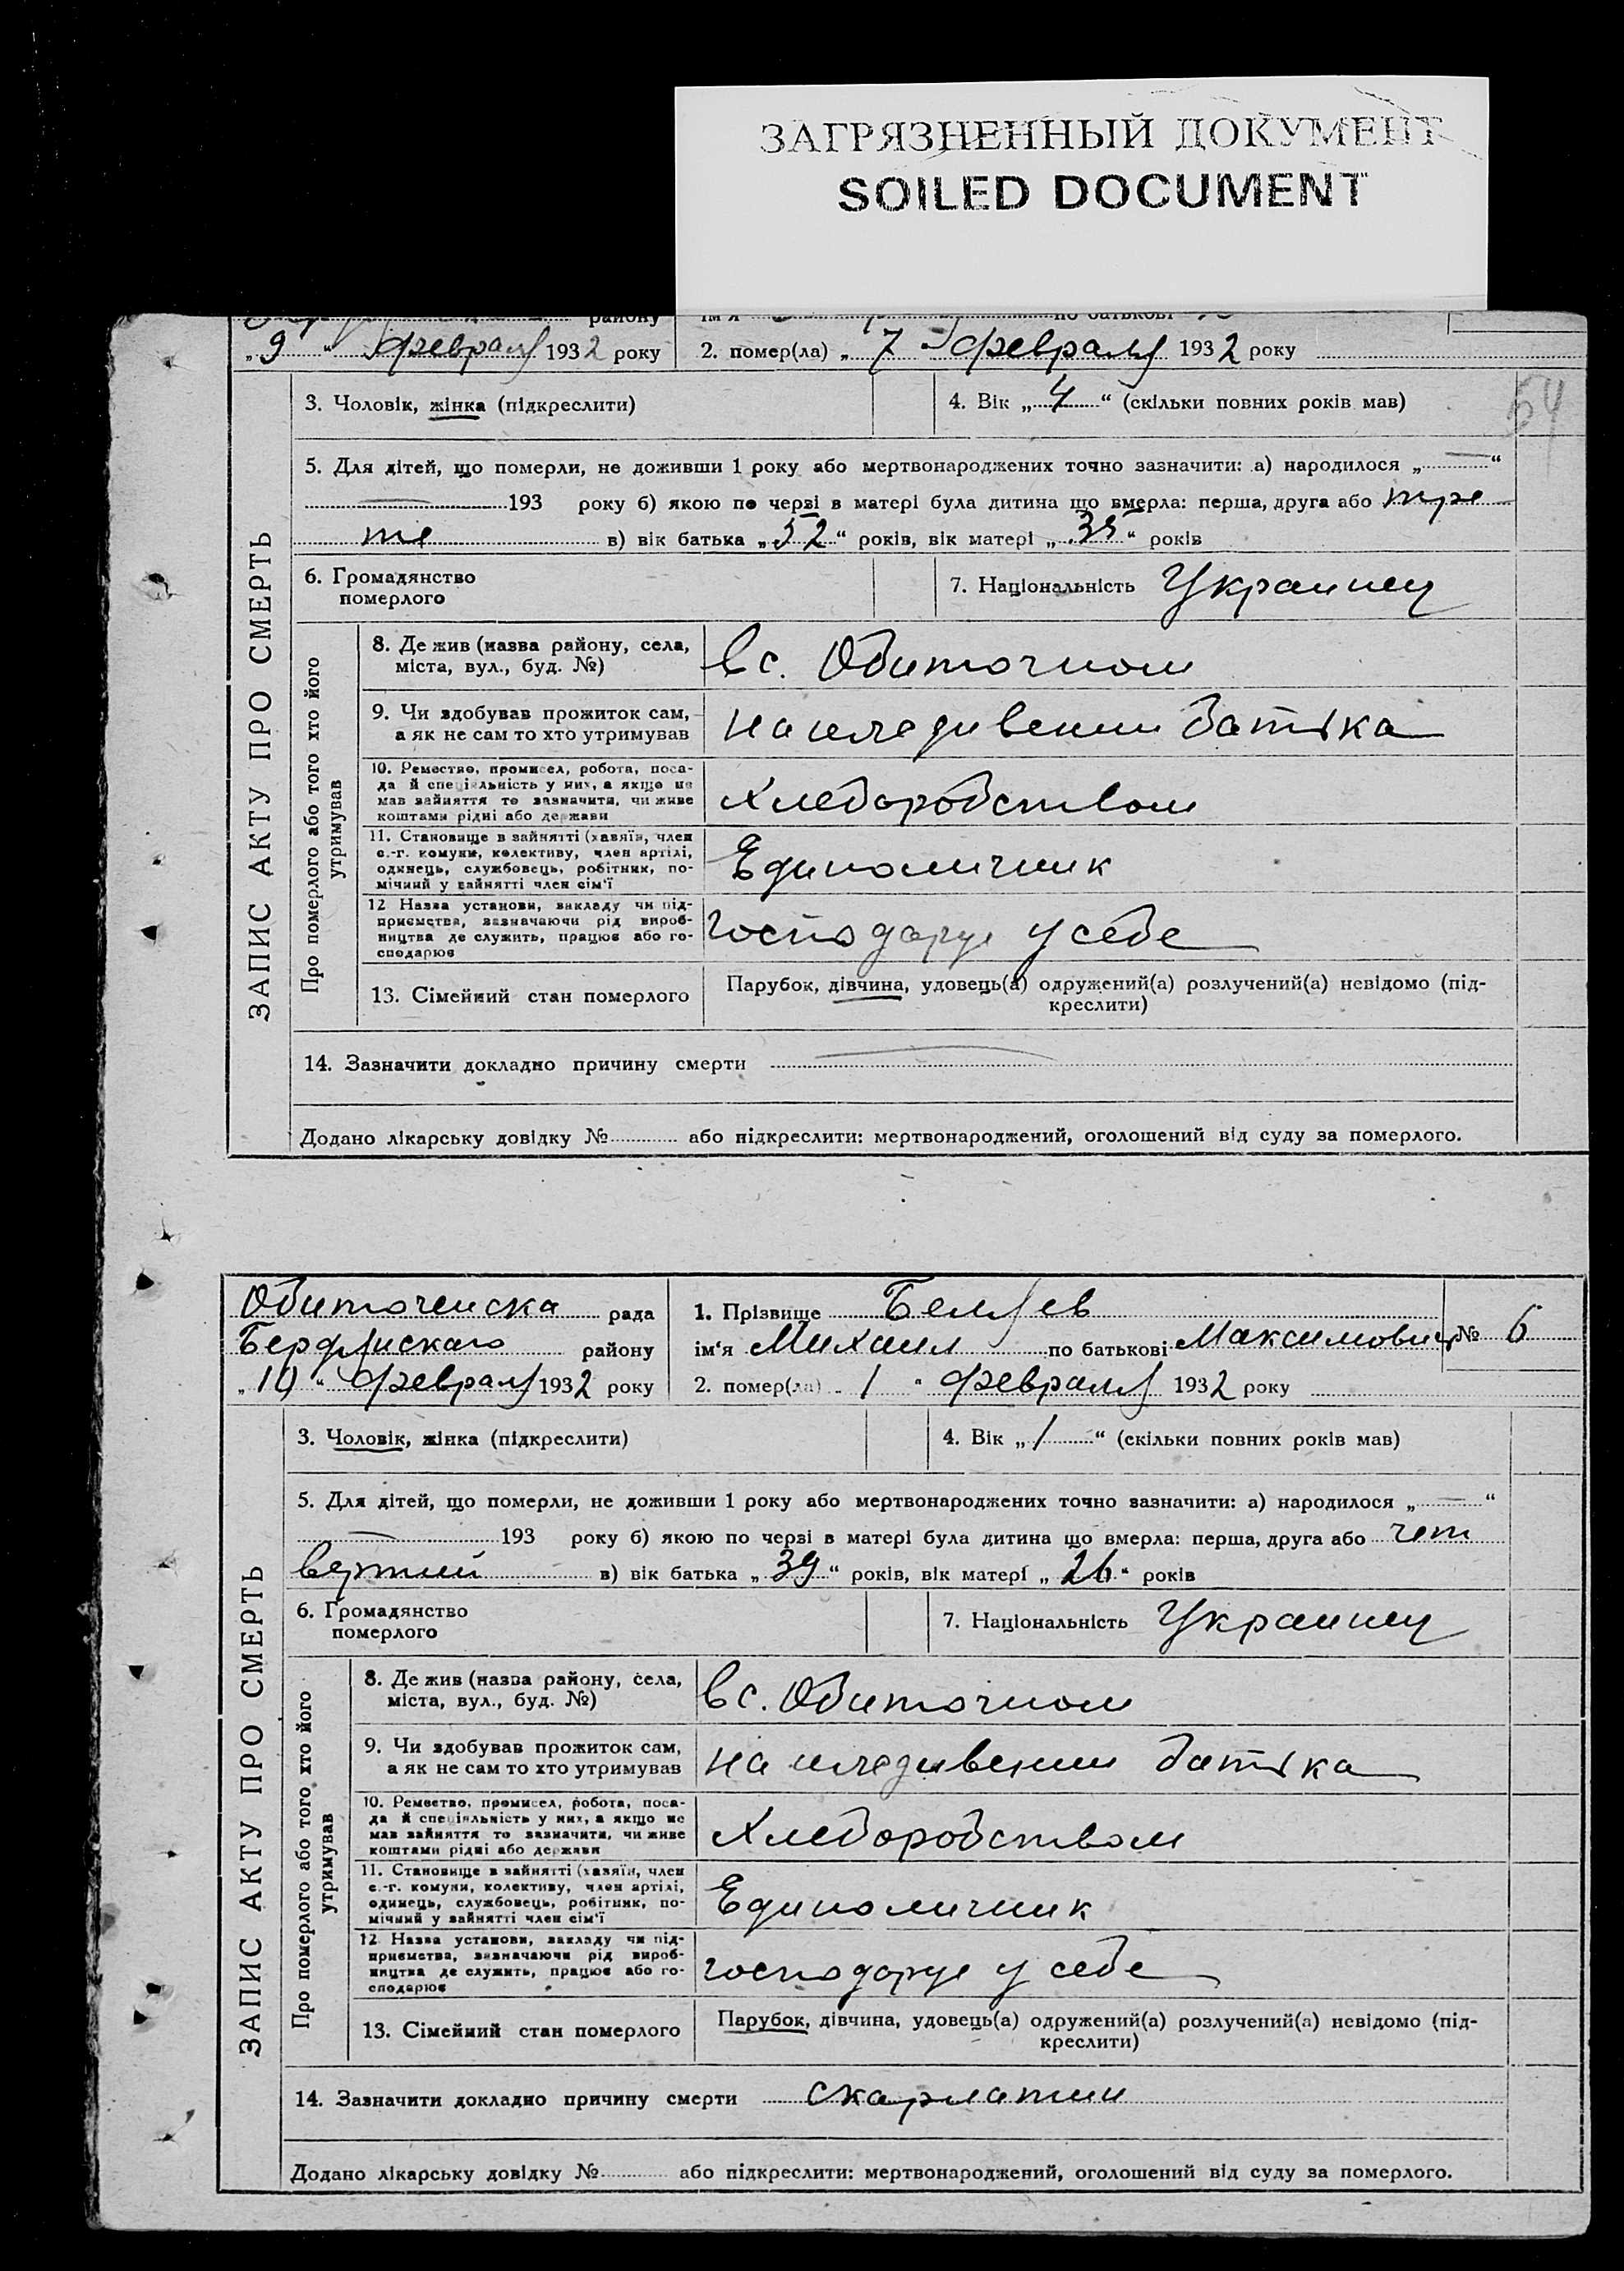 ЗАГРЯЗНЕННЫЙ ДОКУМЕНТ
SOILED DOCUMENT
району
ім'я по батькові
„ 9 “ февраля 1932 року
2. помер(ла) „ 7 февраля 1932 року
54
ЗАПИС АКТУ ПРО СМЕРТЬ
3. Чоловік, жінка (підкреслити)
4. Вік „ 4 “ (скільки повних років мав)
5. Для дітей, що померли, не доживши 1 року або мертвонароджених точно зазначити: а) народилося „ — “
— 193 року б) якою по черзі в матері була дитина що вмерла: перша, друга або тре
те в) вік батька „ 52 “ років, вік матері „ 35 “ років
6. Громадянство
померлого
7. Національність Украинец
Про померлого або того хто його
утримував
8. Де жив (назва району, села,
міста, вул., буд. №)
в с. Обиточном
9. Чи здобував прожиток сам,
а як не сам то хто утримував
на иждивении батька
10. Ремество, промисел, робота, поса-
да й спеціяльність у них, а якщо не
мав зайняття то зазначити, чи живе
коштами рідні або держави
Хлеборобством
11. Становище в зайнятті (хазяїн, член
с.-г. комуни, колективу, член артілі,
одинець, службовець, робітник, по-
мічний у зайнятті член сім'ї
Единоличник
12 Назва установи, закладу чи під-
приємства, зазначаючи рід вироб-
ництва де служить, працює або го-
сподарює
господарує у себе
13. Сімейний стан померлого
Парубок, дівчина, удовець(а) одружений(а) розлучений(а) невідомо (під-
креслити)
14. Зазначити докладно причину смерти —
Додано лікарську довідку № або підкреслити: мертвонароджений, оголошений від суду за померлого.
Обиточенска рада
1. Прізвище Беляев
Бердянскаго району
ім'я Михаил по батькові Максимович
№ 6
„ 10 “ февраля 1932 року
2. помер(ла) „ 1 “ февраля 1932 року
ЗАПИС АКТУ ПРО СМЕРТЬ
3. Чоловік, жінка (підкреслити)
4. Вік „ 1 “ (скільки повних років мав)
5. Для дітей, що померли, не доживши 1 року або мертвонароджених точно зазначити: а) народилося „ — “
— 193 року б) якою по черзі в матері була дитина що вмерла: перша, друга або чет
вертий в) вік батька „ 39 “ років, вік матері „ 26 “ років
6. Громадянство
померлого
7. Національність Украинец
Про померлого або того хто його
утримував
8. Де жив (назва району, села,
міста, вул., буд. №)
в с. Обиточном
9. Чи здобував прожиток сам,
а як не сам то хто утримував
на иждивении батька
10. Ремество, промисел, робота, поса-
да й спеціяльність у них, а якщо не
мав зайняття то зазначити, чи живе
коштами рідні або держави
Хлеборобством
11. Становище в зайнятті (хазяїн, член
с.-г. комуни, колективу, член артілі,
одинець, службовець, робітник, по-
мічний у зайнятті член сім'ї
Единоличник
12 Назва установи, закладу чи під-
приємства, зазначаючи рід вироб-
ництва де служить, працює або го-
сподарює
господарує у себе
13. Сімейний стан померлого
Парубок, дівчина, удовець(а) одружений(а) розлучений(а) невідомо (під-
креслити)
14. Зазначити докладно причину смерти скарлатин
Додано лікарську довідку № або підкреслити: мертвонароджений, оголошений від суду за померлого.